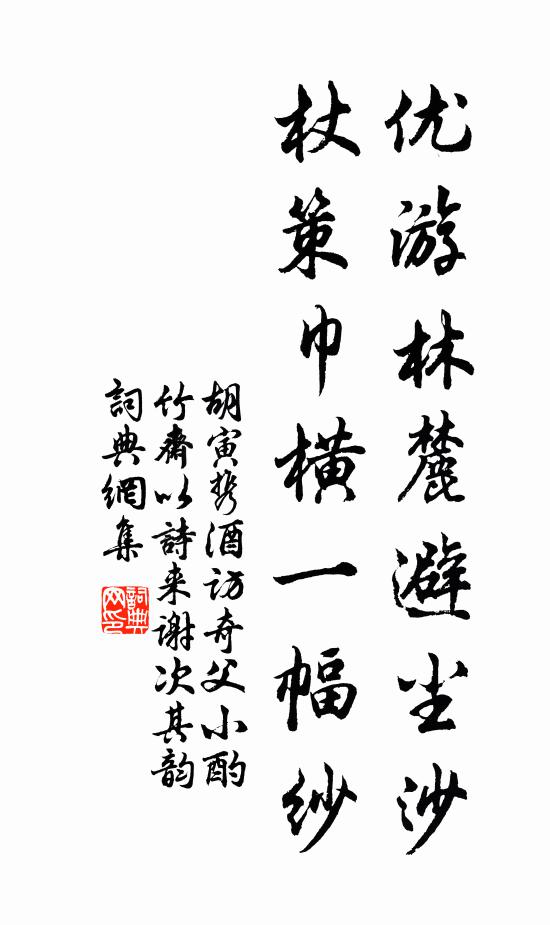 优游林麓避尘沙
杖策巾横一幅纱
胡寅携酒访奇父小酌
竹斋以詩来谢次其韵
詞典網集
詞典网印